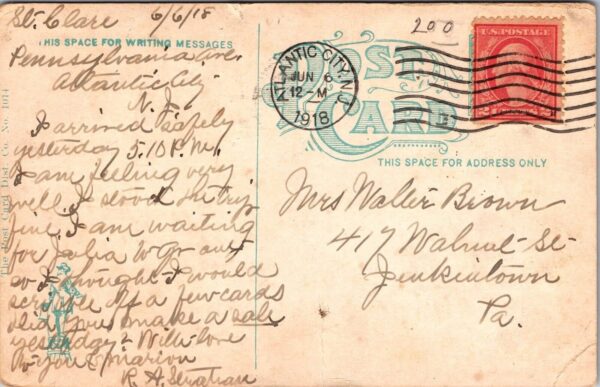 St. Clare 6/6/18
THIS SPACE FOR WRITING MESSAGES
Pennsylvania Ave
Atlantic City
N.J.
I arrived safely
yesterday 5.10 P.M.
I am feeling very
well I stood the trip
fine. I am waiting
for Julia to go out
so I thought I would
scribble off a few cards
Did you make a sale
yesterday? With love
to you & Marion
R. A. Stratian
The Post Card Dist. Co. No. 1074
200
POST
CARD
ATLANTIC CITY, N.J.
JUN 6
12-M
1918
U.S. POSTAGE
THIS SPACE FOR ADDRESS ONLY
Mrs Walter Brown
417 Walnut St
Jenkintown
Pa.